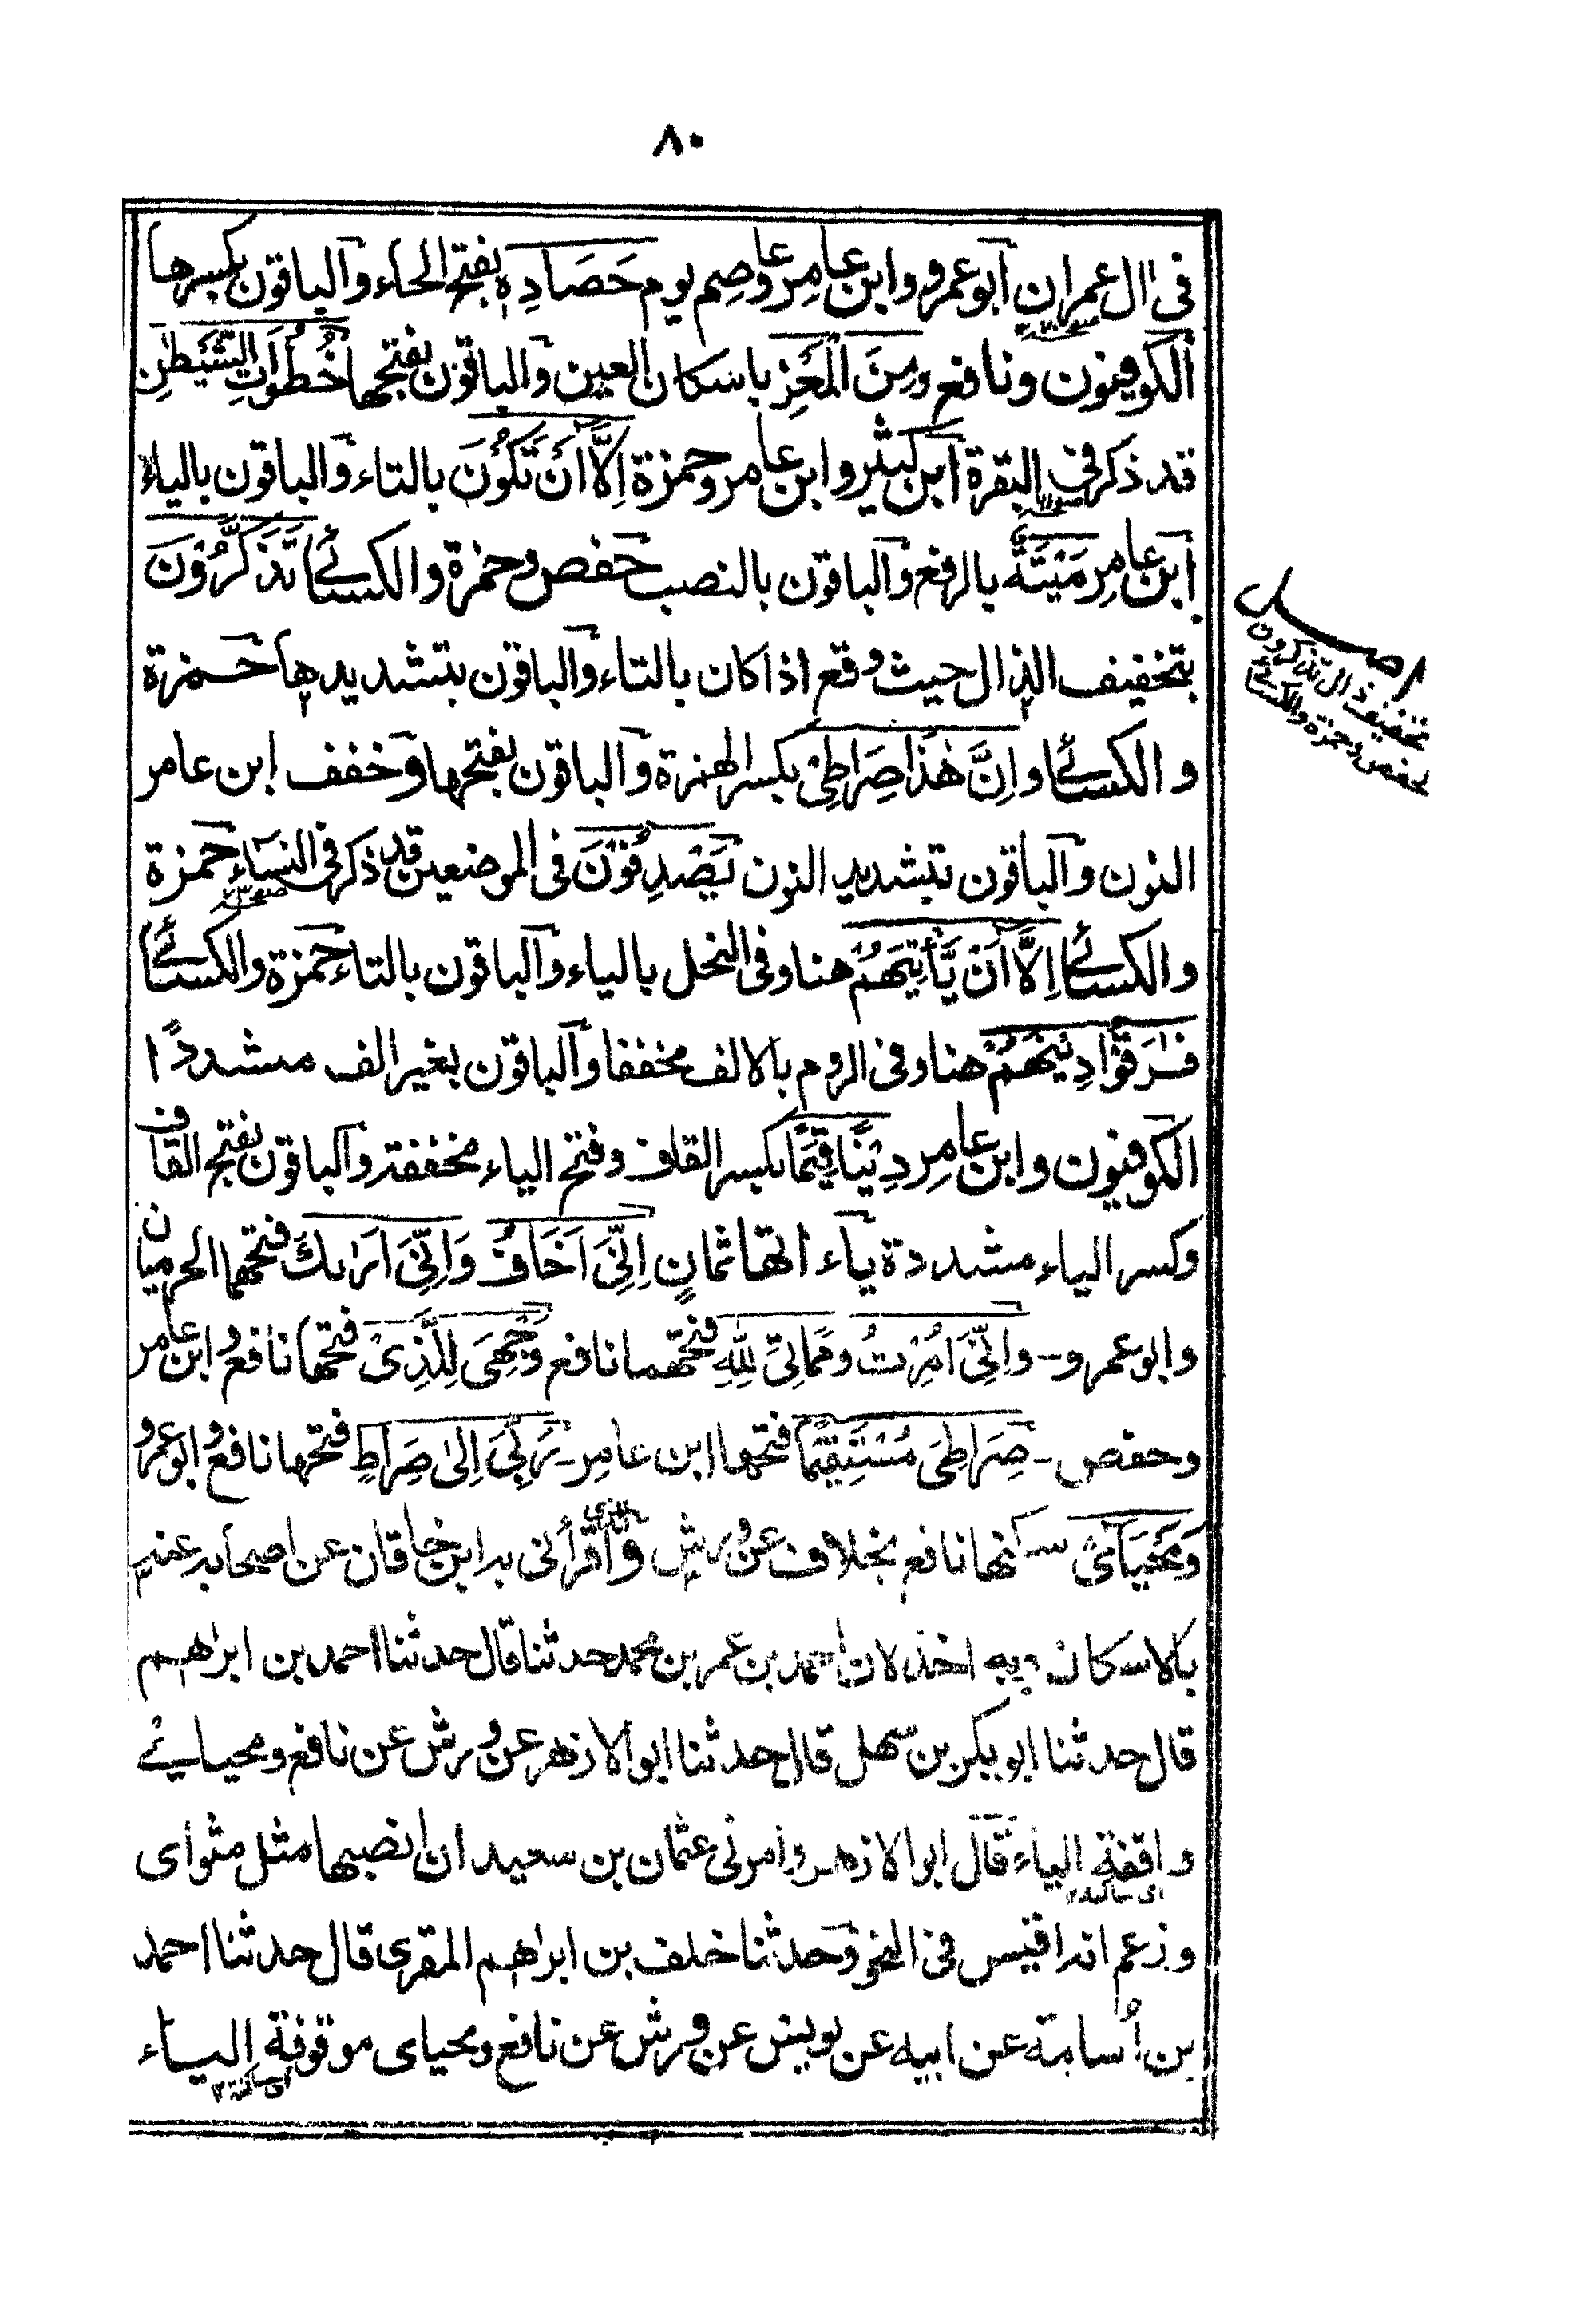 ٨٠
في ال عمران ابو عمرو وابن عامر وعاصم يوم حَصَادِهٖ بفتح الحاء والباقون بكسرها
الكوفيون ونافع ومِنَ الْمَعْزِ باسكان العين والباقون بفتحها خُطُوَاتِ الشَّيْطٰنِ
قد ذكر في البقرة ابن كثير وابن عامر وحمزة اِلَّا اَنْ تَكُوْنَ بالتاء والباقون بالياء
ابن عامر مَيْتَةٌ بالرفع والباقون بالنصب حفص وحمزة والكسائى تَذَكَّرُوْنَ
بتخفيف الذال حيث وقع اذا كان بالتاء والباقون بتشديدها حمزة
والكسائى واِنَّ هٰذَا صِرَاطِىْ بكسر الهمزة والباقون بفتحها وخفف ابن عامر
النون والباقون بتشديد النون يَصْدِفُوْنَ فى الموضعين قد ذكر فى النساء حمزة
والكسائى اِلَّا اَنْ يَّأْتِيَهُمْ هنا وفى النحل بالياء والباقون بالتاء حمزة والكسائى
فٰرَقُوْا دِيْنَهُمْ هنا وفى الروم بالالف مخففا والباقون بغير الف مشددًا
الكوفيون وابن عامر دِيْنًا قِيَمًا بكسر القاف وفتح الياء مخففة والباقون بفتح القاف
وكسر الياء مشددة ياء اتها ثمانٍ اِنِّىَ اَخَافُ وَاِنِّىَ اَرٰىكَ فتحهما الحرميان
وابو عمرو - واِنِّىَ اُمِرْتُ ومَمَاتِىَ لِلّٰهِ فتحهما نافع وَجْهِىَ لِلَّذِىْ فتحها نافع وابن عامر
وحفص - صِرَاطِىَ مُسْتَقِيْمًا فتحها ابن عامر - رَبِّىَ اِلىٰ صِرَاطٍ فتحها نافع وابو عمرو
وَمَحْيَاىْ سكنها نافع بخلاف عن ورش والذى اقرأنى به ابن خاقان عن اصحابه عنه
بالاسكان وبه اخذ لان احمد بن عمر بن محمد حدثنا قال حدثنا احمد بن ابراهيم
قال حدثنا ابو بكر بن سهل قال حدثنا ابو الازهر عن ورش عن نافع ومحياىْ
واقفة الياء قال ابو الازهر وامرنى عثمان بن سعيد ان انصبها مثل مثواى
اى ساكنة
وزعم انه اقيس فى النحو وحدثنا خلف بن ابراهيم المقرى قال حدثنا احمد
بن اُسامة عن ابيه عن يونس عن ورش عن نافع ومحياى موقوفة الياء
اى ساكنة ١٢
اصل
تخفيف ذال تذكرون
لحفص وحمزة والكسائى